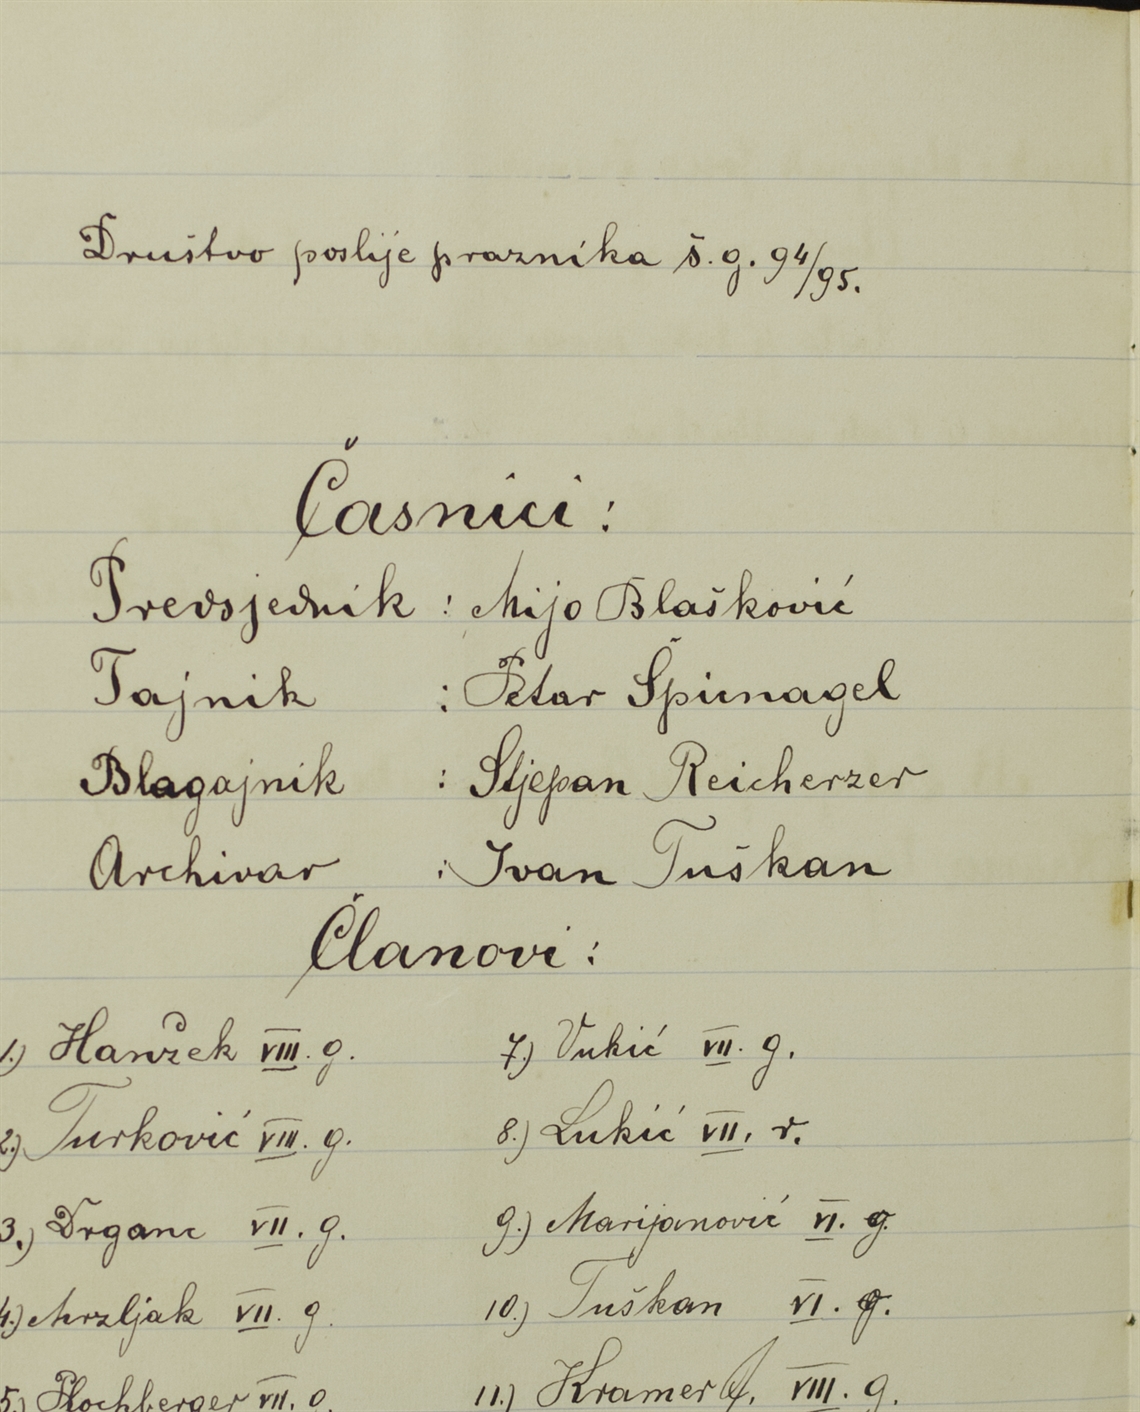 Društvo poslije praznika š. g. 94/95.
Časnici:
Predsjednik : Mijo Blašković
Tajnik : Petar Špinnagel
Blagajnik : Stjepan Reicherzer
Archivar : Ivan Tuškan
Članovi:
1.) Hanžek VIII. g.
2.) Turković VIII. g.
3.) Drganc VII. g.
4.) Mrzljak VII. g.
5.) Hochberger VII. g.
7.) Vukić VII. g.
8.) Lukić VII. r.
9.) Marijanović VI. g.
10.) Tuškan VI. g.
11.) Kramer VIII. g.